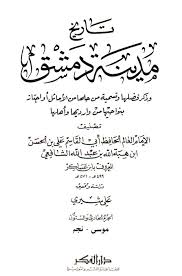 تاريخ
مدينة دمشق
وذكر فضلها وتسمية من حلها من الأماثل أو اجتاز
بنواحيها من وارديها وأهلها
تصنيف
الإمام العالم الحافظ أبي القاسم علي بن الحسن
ابن هبة الله بن عبد الله الشافعي
المعروف بابن عساكر
٤٩٩ هـ - ٥٧١ هـ
دراسة وتحقيق
علي شيري
الجزء الحادي والستون
موسى - نجم
دار الفكر